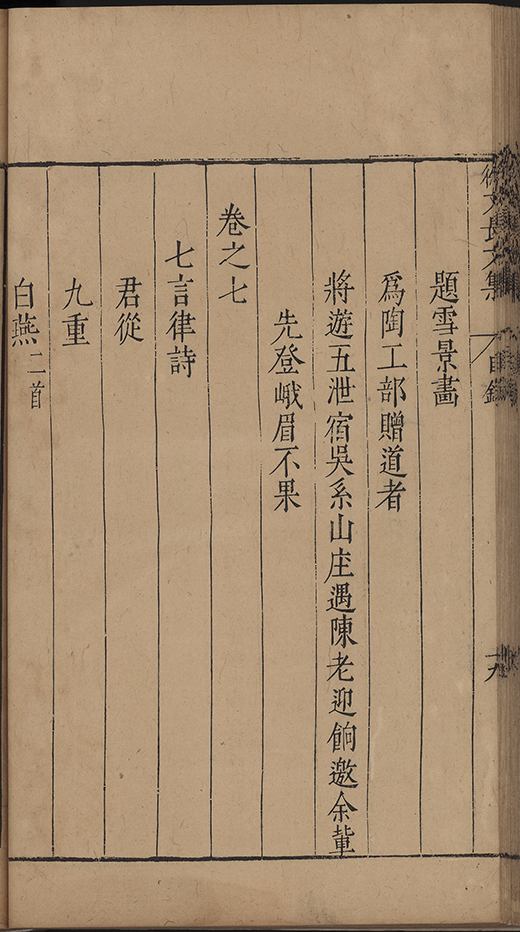 徐文長文集 目錄
題雪景畵
爲陶工部贈道者
將遊五泄宿吳系山庄遇陳老迎餉邀余輩
先登峨眉不果
卷之七
七言律詩
君從
九重
白燕二首